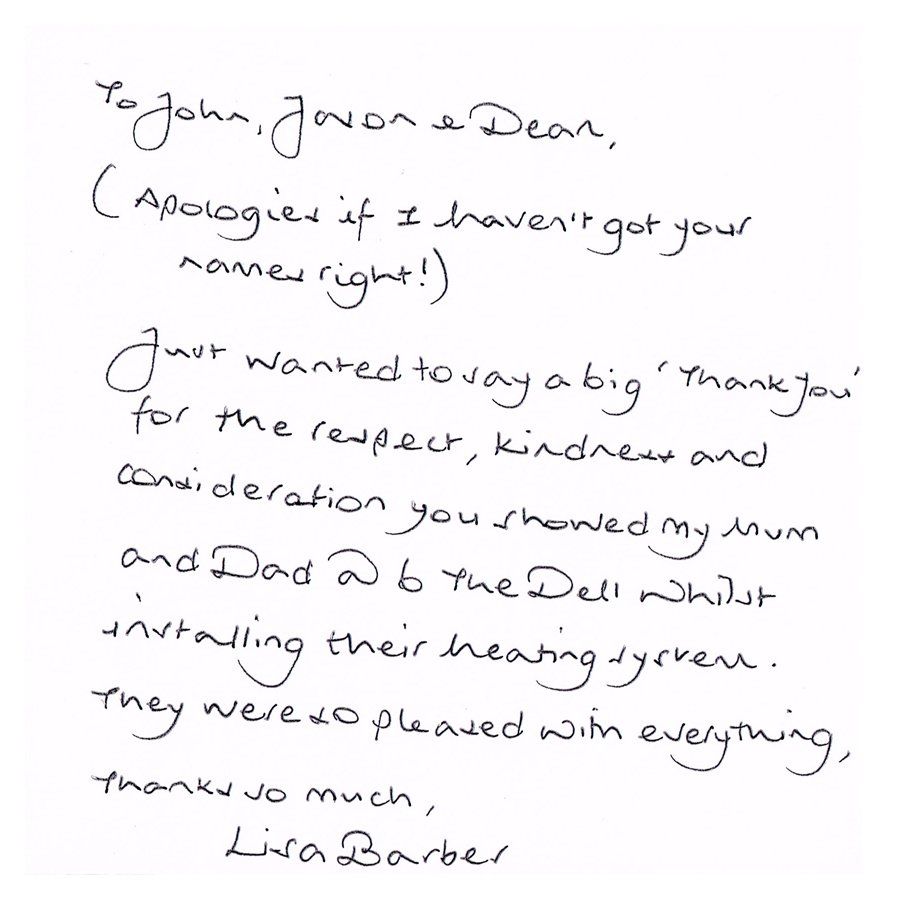 To John, Jason & Dean,
(Apologies if I haven't got your
names right!)
Just wanted to say a big 'Thank you'
for the respect, kindness and
consideration you showed my Mum
and Dad @ 6 The Dell whilst
installing their heating system.
They were so pleased with everything,
thanks so much,
Lisa Barber